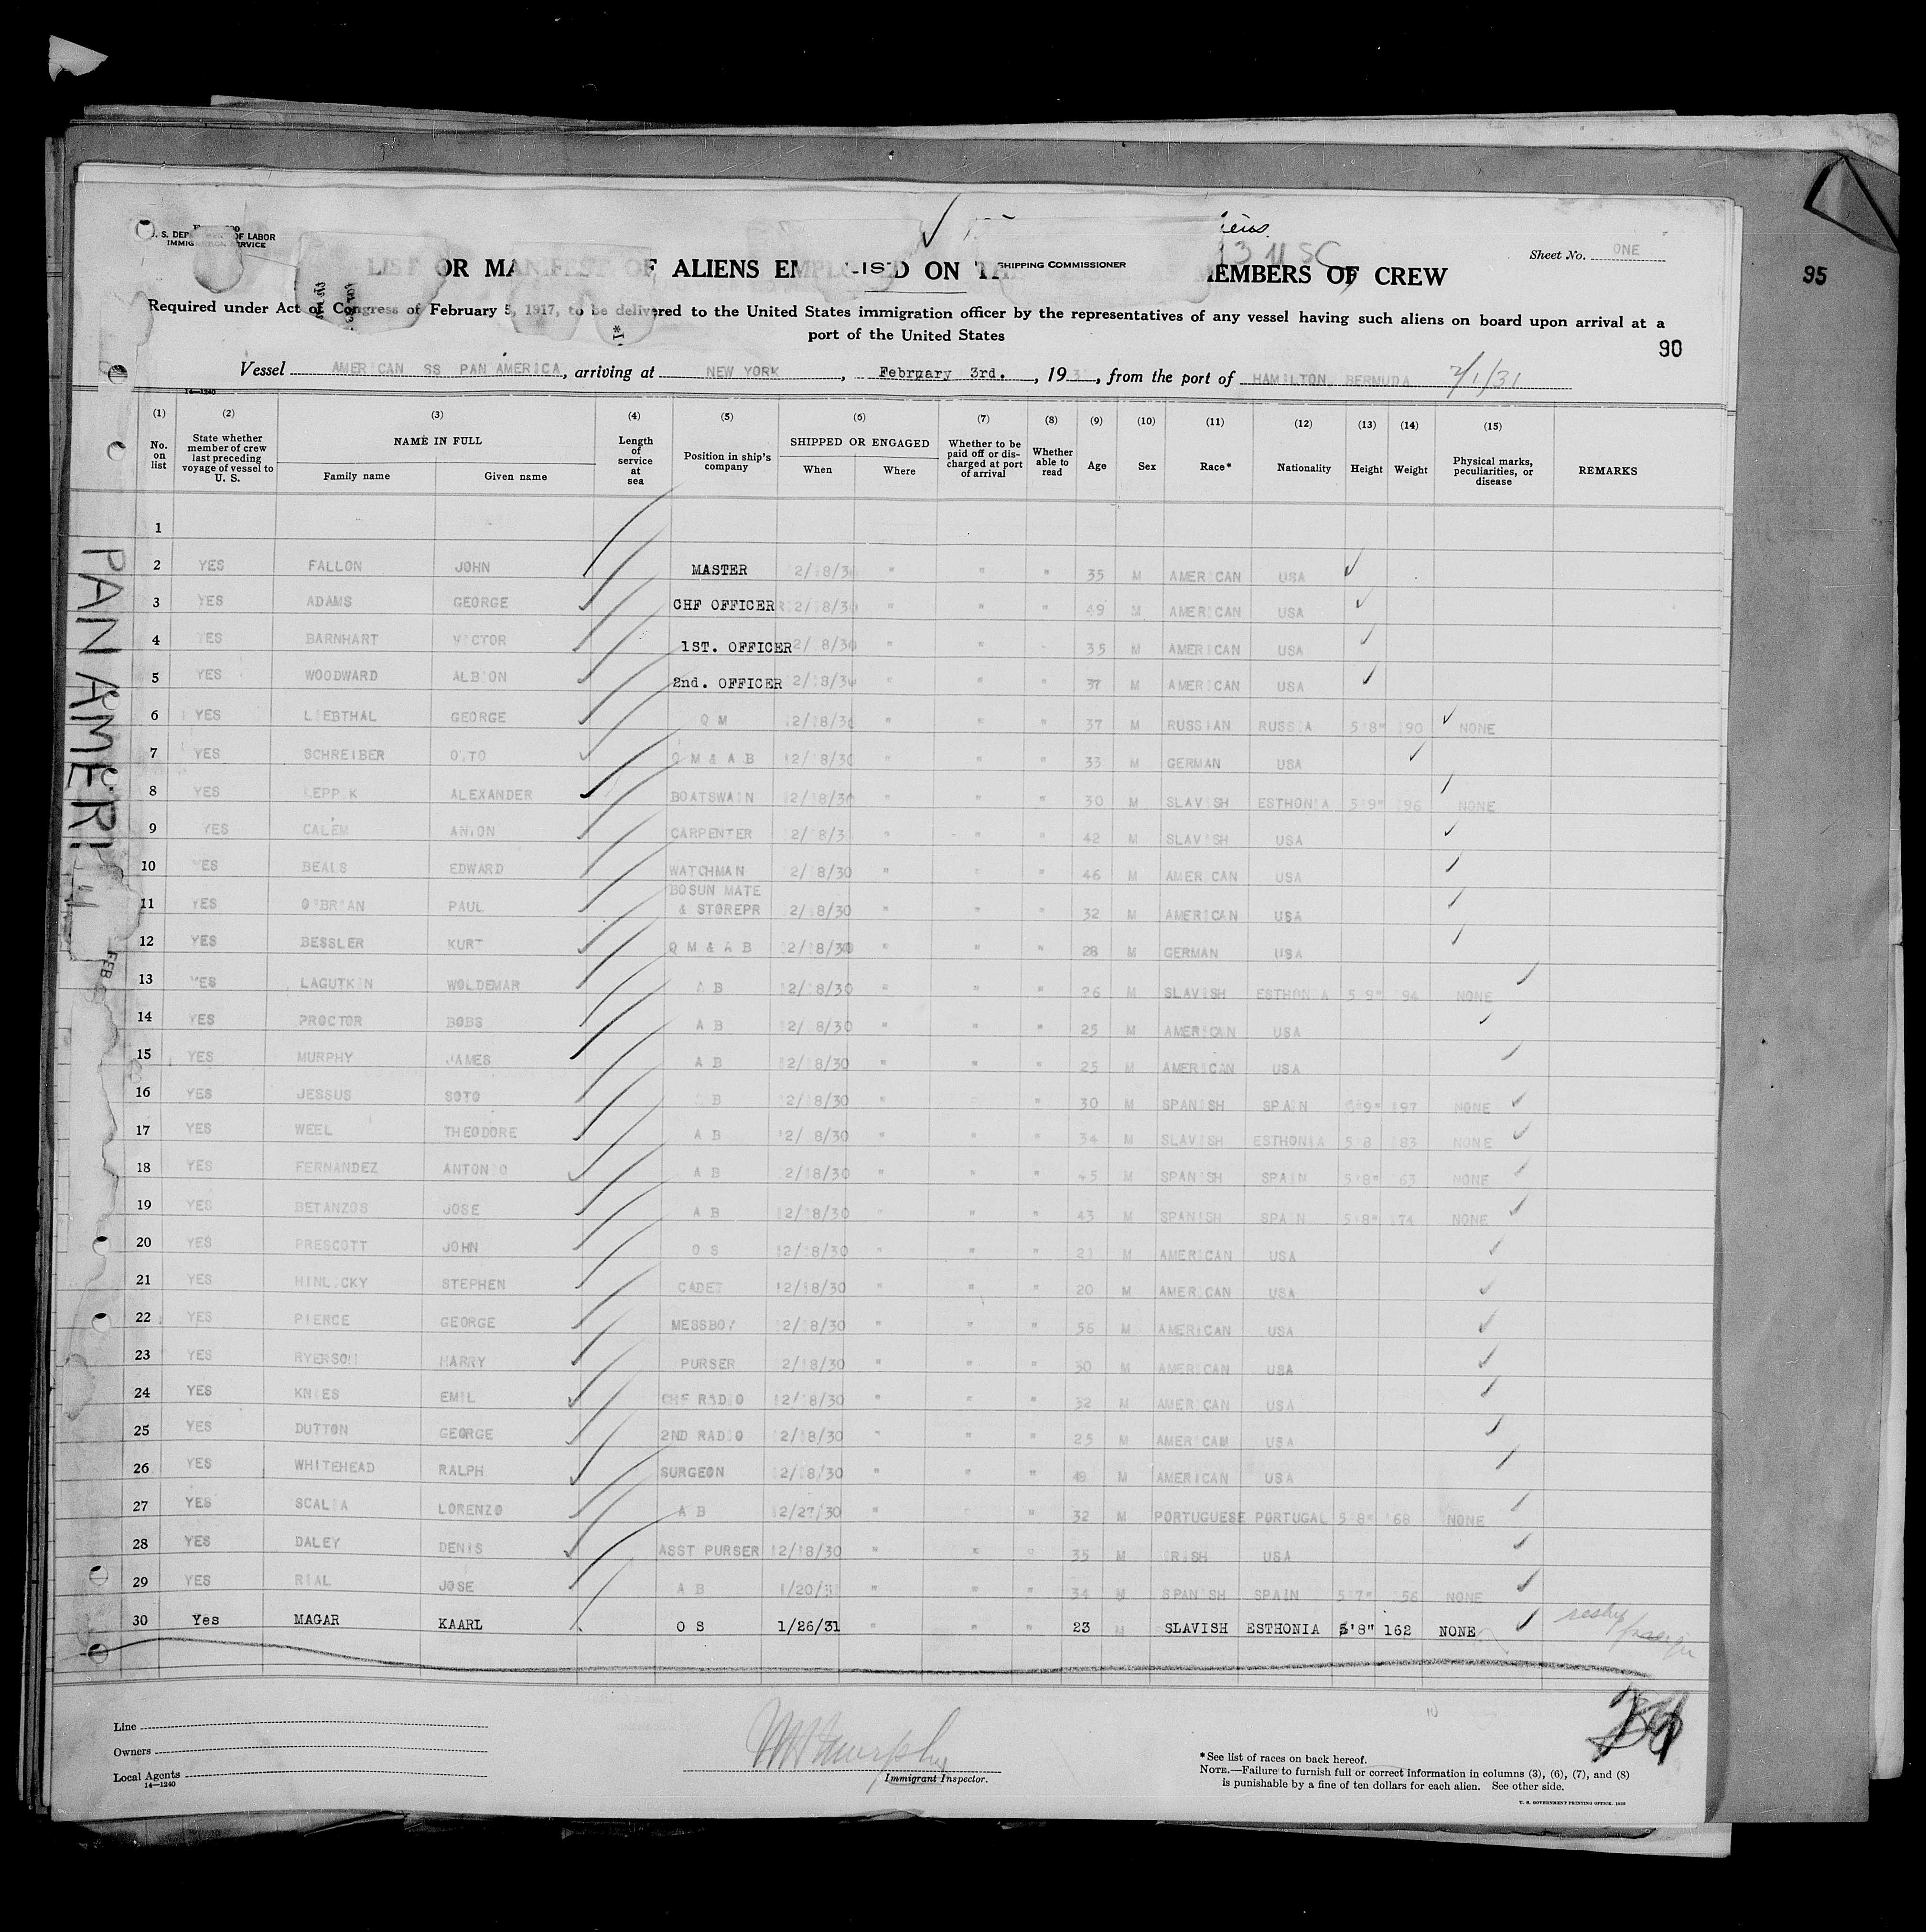 iens.
13 USC
U. S. DEPARTMENT OF LABOR
IMMIGRATION SERVICE
Sheet No. ONE
95
LIST OR MANIFEST OF ALIENS EMPLOYED ON THE MEMBERS OF CREW
SHIPPING COMMISSIONER
Required under Act of Congress of February 5, 1917, to be delivered to the United States immigration officer by the representatives of any vessel having such aliens on board upon arrival at a
port of the United States
90
Vessel AMERICAN SS PAN AMERICA, arriving at NEW YORK, February 3rd., 193, from the port of HAMILTON BERMUDA 2/1/31
14—1240
(1) (2) (3) (4) (5) (6) (7) (8) (9) (10) (11) (12) (13) (14) (15)
No. on list State whether member of crew last preceding voyage of vessel to U. S. NAME IN FULL Family name Given name Length of service at sea Position in ship's company SHIPPED OR ENGAGED When Where Whether to be paid off or discharged at port of arrival Whether able to read Age Sex Race* Nationality Height Weight Physical marks, peculiarities, or disease REMARKS
1
2 YES FALLON JOHN MASTER 2/18/30 " " " 35 M AMERICAN USA
3 YES ADAMS GEORGE CHF OFFICER 12/18/30 " " " 49 M AMERICAN USA
4 YES BARNHART VICTOR 1ST. OFFICER 2/18/30 " " 35 M AMERICAN USA
5 YES WOODWARD ALBION 2nd. OFFICER 12/18/30 " " " 37 M AMERICAN USA
6 YES LIEBTHAL GEORGE Q M 12/18/30 " " " 37 M RUSSIAN RUSSIA 5'8" 190 NONE
7 YES SCHREIBER OTTO Q M & A B 12/18/30 " " " 33 M GERMAN USA
8 YES LEPPIK ALEXANDER BOATSWAIN 12/18/30 " " " 30 M SLAVISH ESTHONIA 5'9" NONE
9 YES CALEM ANTON CARPENTER 12/18/3 " " " 42 M SLAVISH USA
10 YES BEALS EDWARD WATCHMAN 12/18/30 " " " 46 M AMERICAN USA
11 YES O'BRIAN PAUL BOSUN MATE & STOREPR 12/18/30 " " " 32 M AMERICAN USA
12 YES BESSLER KURT Q M & A B 12/18/30 " " " 28 M GERMAN USA
13 YES LAGUTKIN WOLDEMAR A B 12/18/30 " " " 26 M SLAVISH ESTHONIA 5'9" 194 NONE
14 YES PROCTOR BOBS A B 12/18/30 " " " 25 M AMERICAN USA
15 YES MURPHY JAMES A B 12/18/30 " " " 25 M AMERICAN USA
16 YES JESSUS SOTO B 12/18/30 " " 30 M SPANISH SPAIN 5'9" 197 NONE
17 YES WEEL THEODORE A B 12/18/30 " " " 34 M SLAVISH ESTHONIA 5'8 183 NONE
18 YES FERNANDEZ ANTONIO A B 12/18/30 " " " 45 M SPANISH SPAIN 5'8" 163 NONE
19 YES BETANZOS JOSE A B 12/18/30 " " " 43 M SPANISH SPAIN 5'8" 174 NONE
20 YES PRESCOTT JOHN O S 12/18/30 " " " 21 M AMERICAN USA
21 YES HINLICKY STEPHEN CADET 12/18/30 " " " 20 M AMERICAN USA
22 YES PIERCE GEORGE MESSBOY 12/18/30 " " " 56 M AMERICAN USA
23 YES RYERSON HARRY PURSER 12/18/30 " " " 30 M AMERICAN USA
24 YES KNIES EMIL CHF RADIO 12/18/30 " " " 32 M AMERICAN USA
25 YES DUTTON GEORGE 2ND RADIO 12/18/30 " " " 25 M AMERICAM USA
26 YES WHITEHEAD RALPH SURGEON 12/18/30 " " " 49 M AMERICAN USA
27 YES SCALIA LORENZO A B 12/27/30 " " 32 M PORTUGUESE PORTUGAL 5'8" 168 NONE
28 YES DALEY DENIS ASST PURSER 12/18/30 " " " 35 M IRISH USA
29 YES RIAL JOSE A B 1/20/31 " " " 34 M SPANISH SPAIN 5'7" 156 NONE
30 Yes MAGAR KAARL O S 1/26/31 " " " 23 M SLAVISH ESTHONIA 5'8" 162 NONE
PAN AMERI
FEB
Line
Owners
Local Agents
14—1240
Immigrant Inspector.
10
*See list of races on back hereof.
NOTE.—Failure to furnish full or correct information in columns (3), (6), (7), and (8)
is punishable by a fine of ten dollars for each alien. See other side.
U. S. GOVERNMENT PRINTING OFFICE: 1929